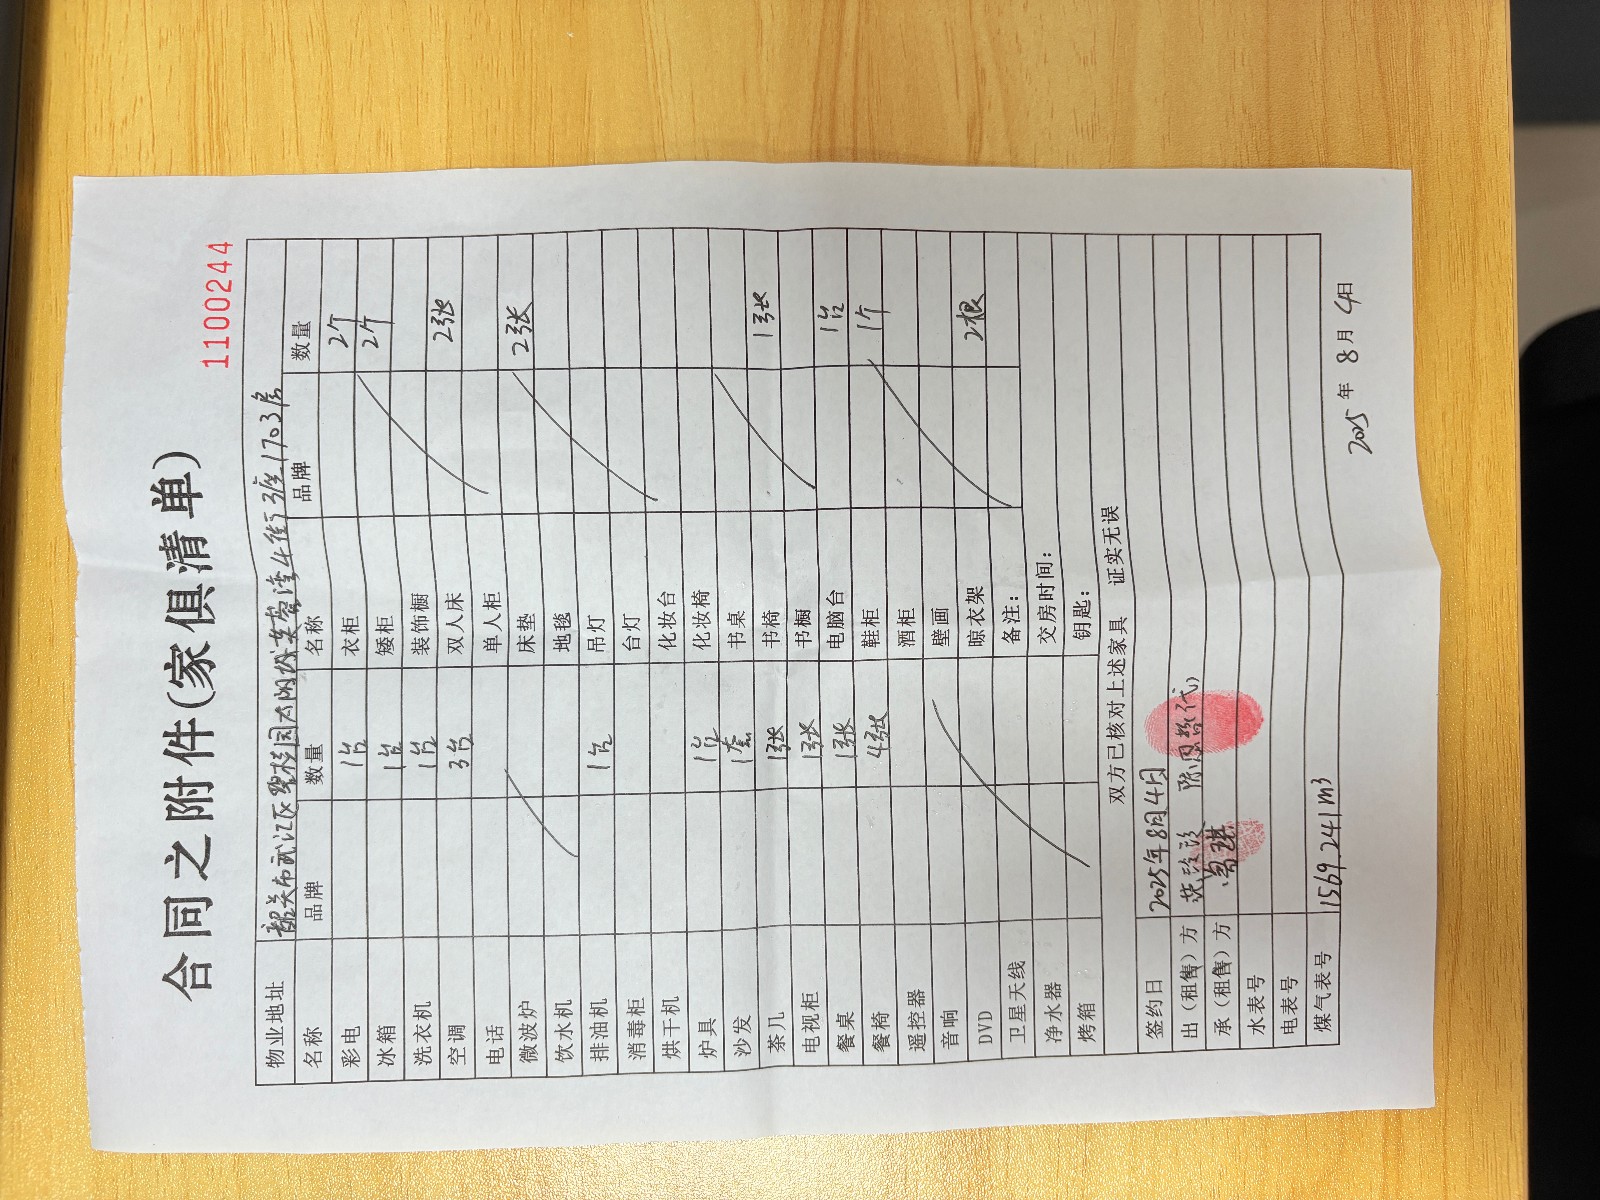 1100244
合同之附件(家俱清单)
物业地址 韶关市武江区碧桂园太阳城芙蓉湾4街3座1703房
名称 品牌 数量 名称 品牌 数量
彩电 1台 衣柜 2个
冰箱 1台 矮柜 2个
洗衣机 1台 装饰橱
空调 3台 双人床 2张
电话 单人柜
微波炉 床垫 2张
饮水机 地毯
排油机 1台 吊灯
消毒柜 台灯
烘干机 化妆台
炉具 1台 化妆椅
沙发 1套 书桌
茶几 1张 书椅 1张
电视柜 1张 书橱
餐桌 1张 电脑台 1台
餐椅 4张 鞋柜 1个
遥控器 酒柜
音响 壁画
DVD 晾衣架 2根
卫星天线 备注：
净水器 交房时间：
烤箱 钥匙：
双方已核对上述家具 证实无误
签约日 2025年8月4日
出（租售）方 陈恩 代）
承（租售）方
水表号
电表号
煤气表号 1569.241m3
2025 年 8 月 4 日